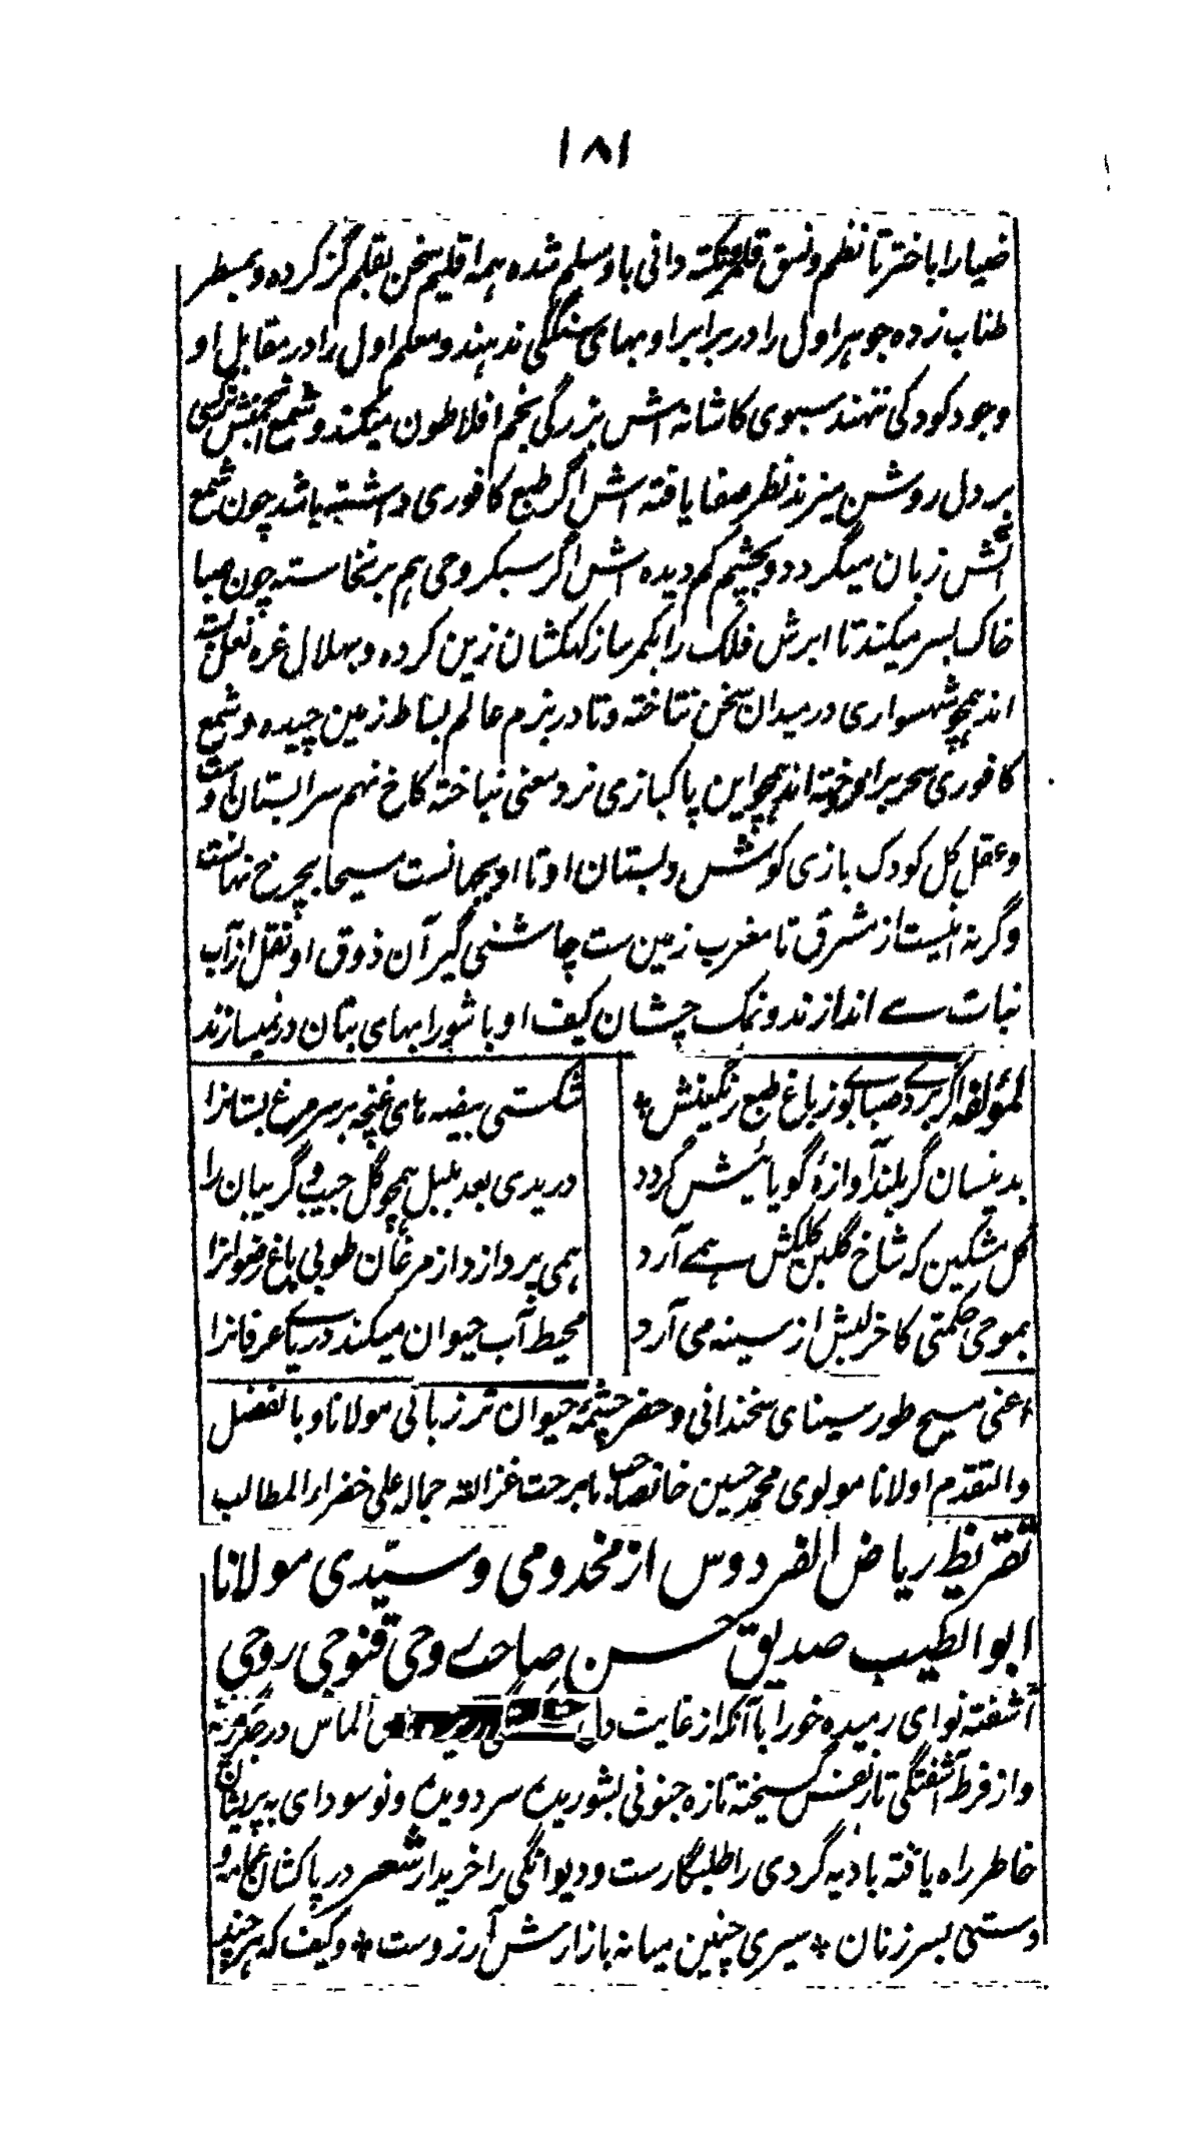 ۱۸۱
ضیا را باختر تا نظم و نسق قلمرو نکته دانی باو مسلم شده همه اقلیم سخن بقلم گز کرده و بمسطر
طناب زده جوهر اول را در برابر او بهای سنگی ندهند و معلم اول را در مقابل او
وجود کودکی ننهند سبوی کاشانه اش بزرگی بخم افلاطون میکند و شمع انجمنش
بر دل روشن میزند نظر صفا یافته اش اگر طبع کافوری داشته باشد چون شمع
آتش زبان میگردد و بچشم کم دیده اش اگر سبکروحی هم برنخاسته چون صبا
خاک بسر میکند تا ابرش فلک را بکمر ساز کهکشان زین کرده و بهلال غره نعل بسته
اند همچو شهسواری در میدان سخن نتاخته و تا در بزم عالم بساط زمین چیده و شمع
کافوری سحر برافروخته اند همچو این پاکبازی نرد معنی نباخته کاخ نهم سرابستان اوست
و عقل کل کودک بازی کوش دبستان او تا او بجهانست مسیحا بچرخ نهانست
وگرنه اینست از مشرق تا مغرب زمین ست چاشنی گیر آن ذوق او نقل از آب
نبات می اندازند و نمک چشان کیف او با شورابهای بتان درنمیسازند
لمؤلفه اگر بردی صبا بوی ز باغ طبع رنگینش * شکستی بیضه های غنچه بر سر مرغ بستانرا
بدینسان گر بلند آوازهٔ گویائیش گردد دریدی بعد بلبل همچو گل جیب و گریبان را
گل مشکین که شاخ گلبن کلکش همی آرد همی پردازد از مرغان طوبی باغ رضوانرا
بموجی حکمتی کاخر لبش از سینه می آرد محیط آب حیوان میکند دریای عرفانرا
اعنی مسیح طور سینای سخندانی و خضر چشمهٔ حیوان تر زبانی مولانا و بالفضل
والتقدم اولانا مولوی محمد حسین خانصاحب
تقریظ ریاض الفردوس از مخدومی و سیّدی مولانا
ابو الطیب صدیق حسن صاحب روحی قنوجی روحی
آشفته نوای رمیده خو را با آنکه از غایت دل الماس در جگر
و از فرط آشفتگی تار نفس گسیخته تازه جنونی بشوریده سر دویده و نو سودای به پریشان
خاطر راه یافته بادیه گردی را طلبگارست و دیوانگی را خریدار شعر در پا کشان عمامه و
دستی بسر زنان * سیری چنین میانه بازارش آرزوست * و کیف که هر چند